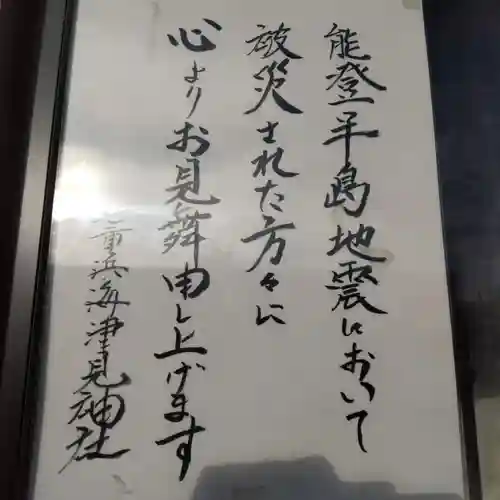 能登半島地震において
被災された方々に
心よりお見舞申し上げます
童浜海津見神社